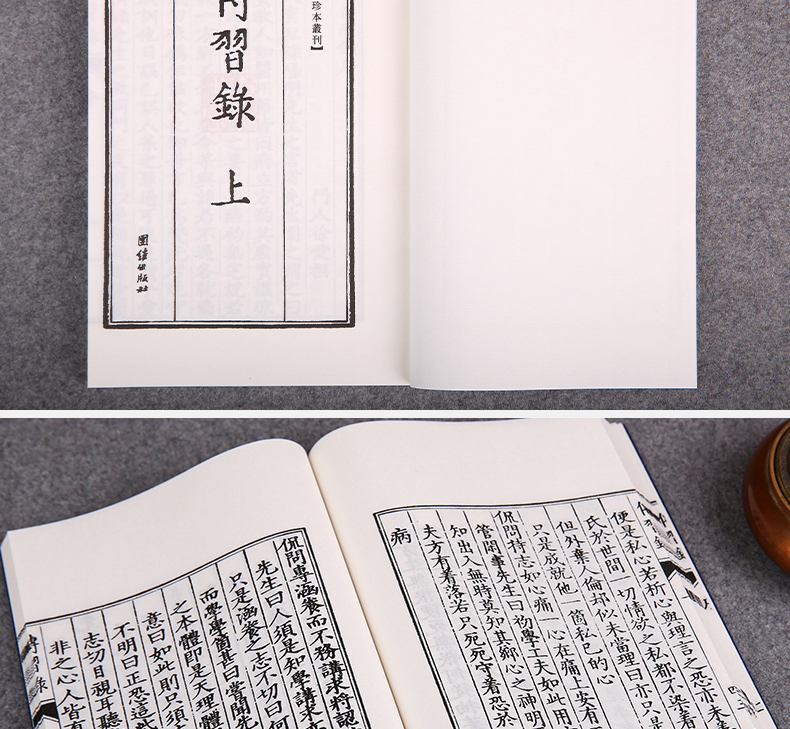 珍本叢刊】
習錄 上
團結出版社
便是私心若析心與理言之恐亦未
氏於世間一切情欲之私都不染着
但外棄人倫却似未當理曰亦只是
只是成就他一箇私已的心
侃問持志如心痛一心在痛上安有
管閒事先生曰初學工夫如此用
知出入無時莫知其鄉心之神明
夫方有着落若只死死守着恐於
病
侃問專涵養而不務講求將認
先生曰人須是知學講求亦
只是涵養之志不切曰何
而學學箇甚曰嘗聞先
之本體即是天理體
意曰如此則只須
不明曰正恐這
志切目視耳聽
非之心人皆有
傳習錄